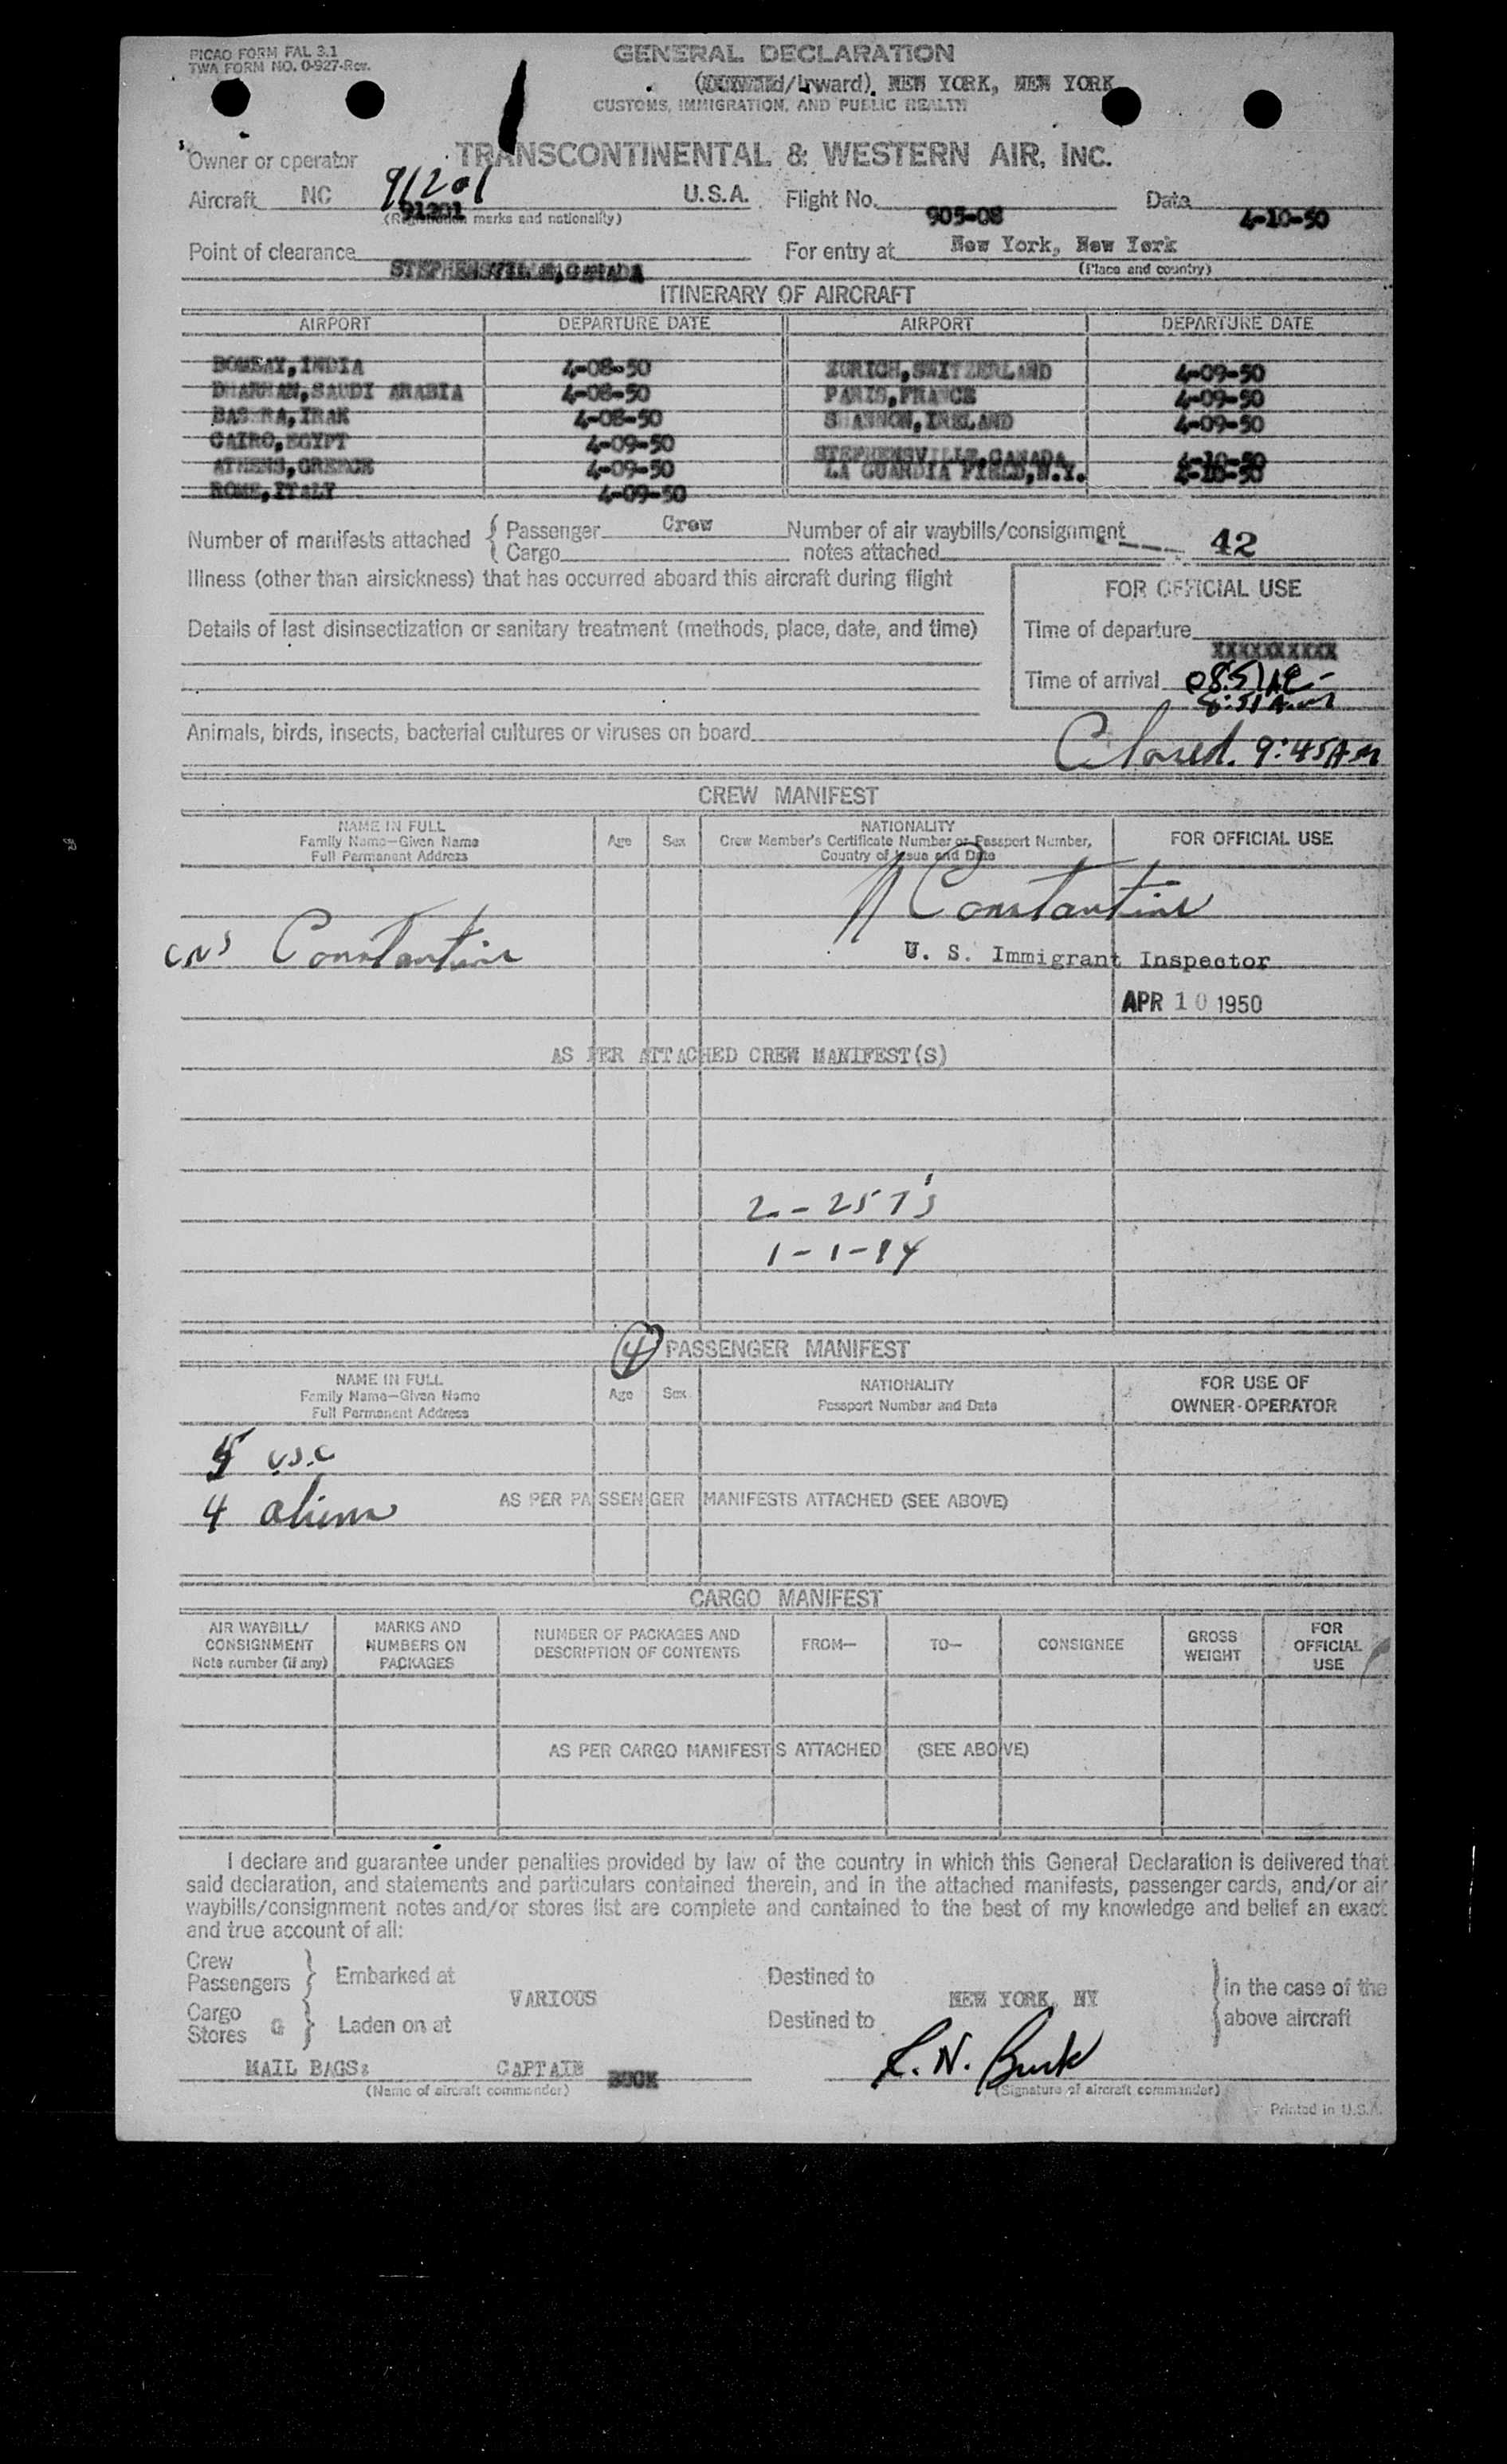 PICAO FORM FAL 3.1
TWA FORM NO. O-927-Rev.
GENERAL DECLARATION
(Outward/Inward). NEW YORK, NEW YORK
CUSTOMS, IMMIGRATION, AND PUBLIC HEALTH
Owner or operator TRANSCONTINENTAL & WESTERN AIR, INC.
Aircraft NC 91201 U.S.A. Flight No. 905-08 Date 4-10-50
91201
(Registration marks and nationality)
Point of clearance STEPHENSVILLE, CANADA For entry at New York, New York
(Place and country)
ITINERARY OF AIRCRAFT
AIRPORT DEPARTURE DATE AIRPORT DEPARTURE DATE
BOMBAY, INDIA 4-08-50 ZURICH, SWITZERLAND 4-09-50
DHAHRAN, SAUDI ARABIA 4-08-50 PARIS, FRANCE 4-09-50
BASRA, IRAK 4-08-50 SHANNON, IRELAND 4-09-50
CAIRO, EGYPT 4-09-50 STEPHENSVILLE, CANADA 4-10-50
ATHENS, GREECE 4-09-50 LA GUARDIA FIELD, N.Y. 4-10-50
ROME, ITALY 4-09-50
Number of manifests attached { Passenger Crew Number of air waybills/consignment
{ Cargo notes attached 42
Illness (other than airsickness) that has occurred aboard this aircraft during flight
FOR OFFICIAL USE
Details of last disinsectization or sanitary treatment (methods, place, date, and time)
Time of departure
XXXXXXXXXX
Time of arrival 0851
8:51 A.m
Animals, birds, insects, bacterial cultures or viruses on board
Closed. 9:45AM
CREW MANIFEST
NAME IN FULL
Family Name—Given Name
Full Permanent Address
Age Sex
NATIONALITY
Crew Member's Certificate Number or Passport Number,
Country of Issue and Date
FOR OFFICIAL USE
Constantine
Constantine
U. S. Immigrant Inspector
APR 10 1950
AS PER ATTACHED CREW MANIFEST(S)
2 - 257's
1-1-94
4 PASSENGER MANIFEST
NAME IN FULL
Family Name—Given Name
Full Permanent Address
Age Sex
NATIONALITY
Passport Number and Date
FOR USE OF
OWNER-OPERATOR
5 U.S.C
4 aliens AS PER PASSENGER MANIFESTS ATTACHED (SEE ABOVE)
CARGO MANIFEST
AIR WAYBILL/
CONSIGNMENT
Note number (if any)
MARKS AND
NUMBERS ON
PACKAGES
NUMBER OF PACKAGES AND
DESCRIPTION OF CONTENTS
FROM— TO— CONSIGNEE
GROSS
WEIGHT
FOR
OFFICIAL
USE
AS PER CARGO MANIFESTS ATTACHED (SEE ABOVE)
I declare and guarantee under penalties provided by law of the country in which this General Declaration is delivered that
said declaration, and statements and particulars contained therein, and in the attached manifests, passenger cards, and/or air
waybills/consignment notes and/or stores list are complete and contained to the best of my knowledge and belief an exact
and true account of all:
Crew
Passengers } Embarked at VARIOUS Destined to NEW YORK, NY } in the case of the
Cargo
Stores & } Laden on at Destined to above aircraft
MAIL BAGS: CAPTAIN BUCK R. N. Buck
(Name of aircraft commander) (Signature of aircraft commander)
Printed in U.S.A.